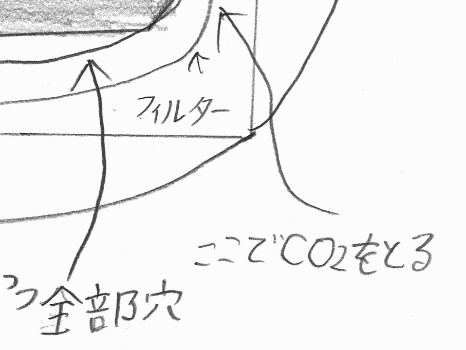 フィルター
ここでCO2をとる
つ全部穴